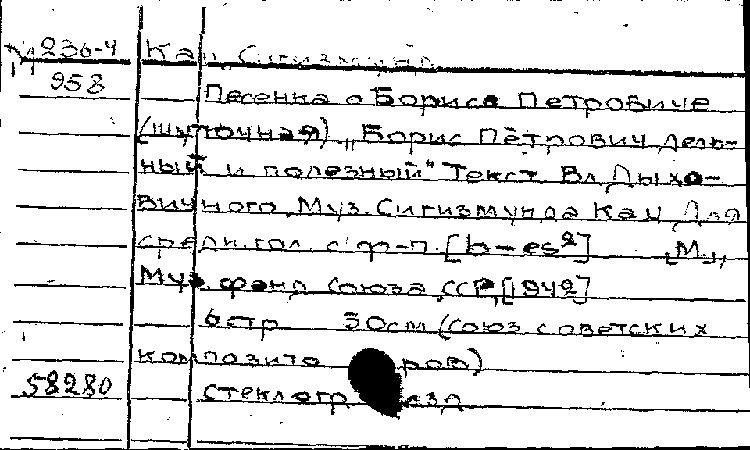 М 236-4 Кац, Сигизмунд.
958 Песенка о Борисе Петровиче
(шуточная) „Борис Петрович дель-
ный и полезный" Текст Вл. Дыхо-
вичного. Муз. Сигизмунда Кац. Для
средн. гол. с ф-п. [b-es²] [М.],
Муз. фонд Союза ССР, [1942]
6 стр 30см (Союз советских
композиторов)
58280 стеклогр. изд